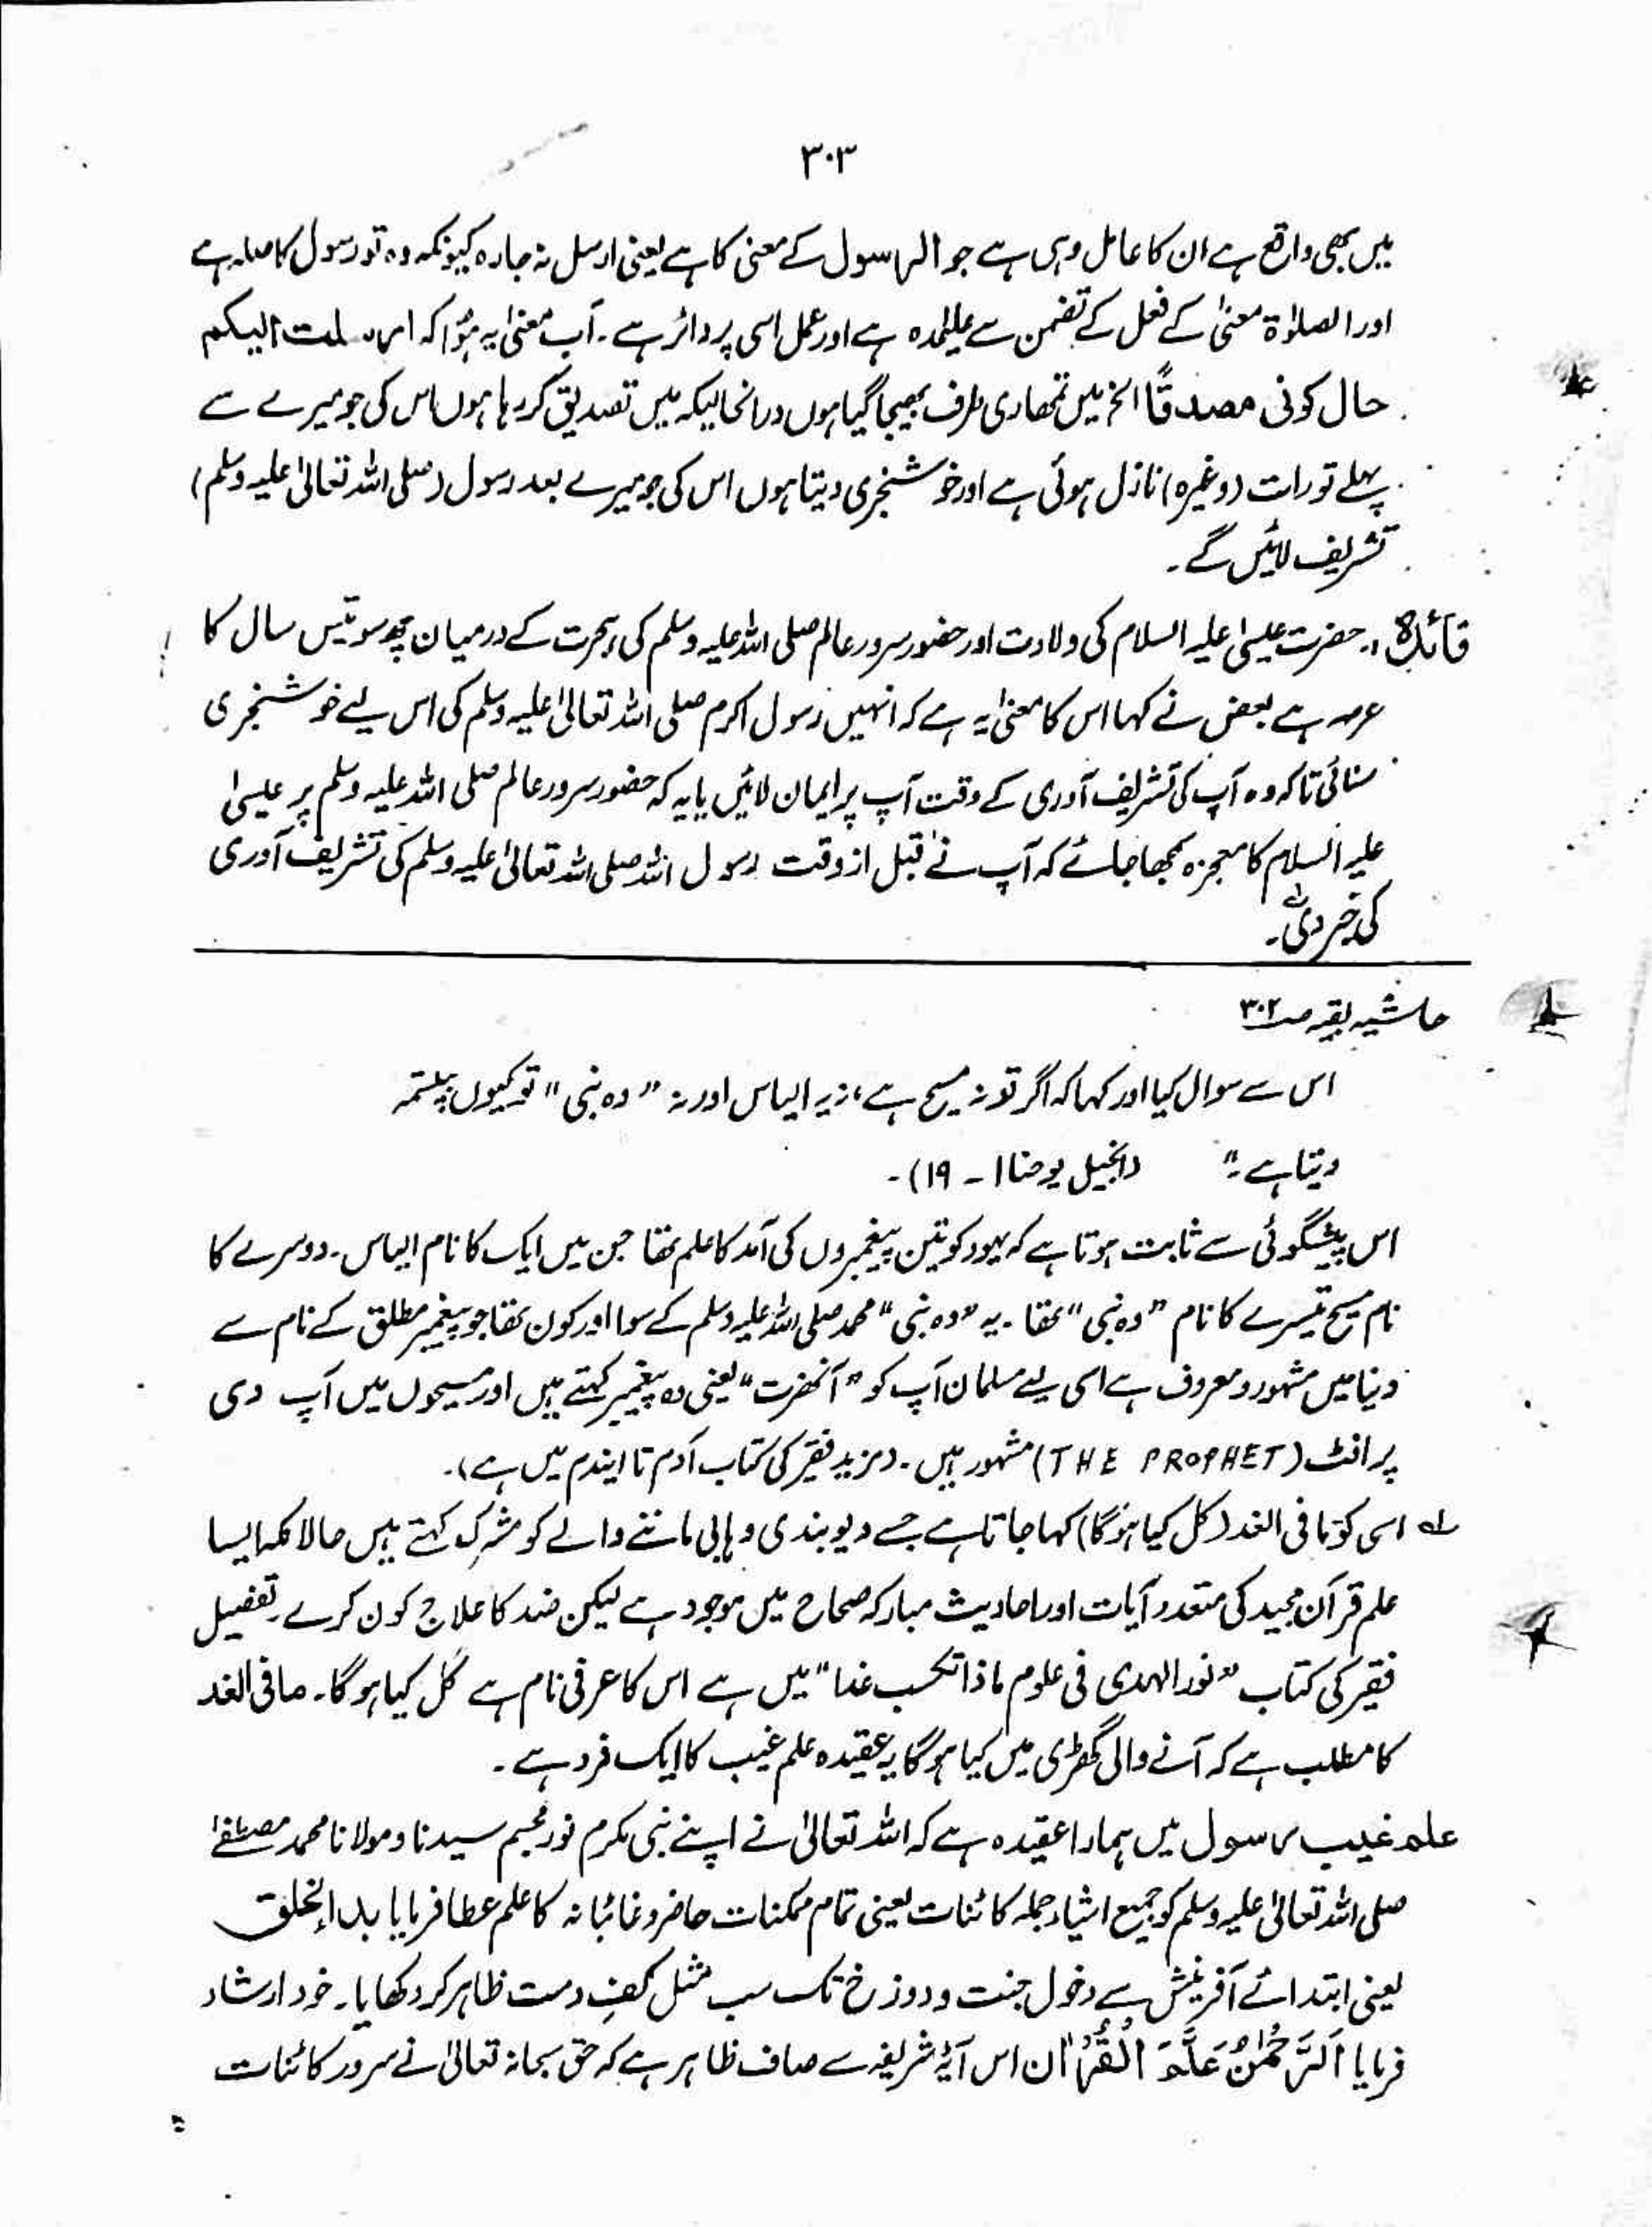 ۳۰۳
میں بھی واقع ہے ان کا عامل وہی ہے جو الرسول کے معنی کا ہے یعنی ارسل نہ جارہ کیونکہ وہ تو رسول کا صلہ ہے
اور الصلوٰۃ معنیٰ کے فعل کے تضمن سے علیحدہ ہے اور عمل اسی پر دائر ہے۔ اب معنیٰ یہ ہوا کہ ارسلت الیکم
حال کونی مصدقًا الخ میں تمھاری طرف بھیجا گیا ہوں درانحالیکہ میں تصدیق کر رہا ہوں اس کی جو میرے سے
پہلے تورات (وغیرہ) نازل ہوئی ہے اور خوشخبری دیتا ہوں اس کی جو میرے بعد رسول (صلی اللہ تعالیٰ علیہ وسلم)
تشریف لائیں گے۔
فائدہ: حضرت عیسیٰ علیہ السلام کی ولادت اور حضور سرور عالم صلی اللہ علیہ وسلم کی ہجرت کے درمیان چھ سو تیس سال کا
عرصہ ہے بعض نے کہا اس کا معنیٰ یہ ہے کہ انہیں رسول اکرم صلی اللہ تعالیٰ علیہ وسلم کی اس لیے خوشخبری
سنائی تاکہ وہ آپ کی تشریف آوری کے وقت آپ پر ایمان لائیں یا یہ کہ حضور سرور عالم صلی اللہ علیہ وسلم پر عیسیٰ
علیہ السلام کا معجزہ سمجھا جائے کہ آپ نے قبل از وقت رسول اللہ صلی اللہ تعالیٰ علیہ وسلم کی تشریف آوری
کی خبر دی۔
حاشیہ بقیہ صـ۳۰۲
اس سے سوال کیا اور کہا کہ اگر تو نہ مسیح ہے، نہ الیاس اور نہ "وہ نبی" تو کیوں بپتسمہ
دیتا ہے۔" (انجیل یوحنا ا ۔ ۱۹)۔
اس پیشگوئی سے ثابت ہوتا ہے کہ یہود کو تین پیغمبروں کی آمد کا علم تھا جن میں ایک کا نام الیاس۔ دوسرے کا
نام مسیح تیسرے کا نام "وہ نبی" تھا۔ یہ "وہ نبی" محمد صلی اللہ علیہ وسلم کے سوا اور کون تھا جو پیغمبر مطلق کے نام سے
دنیا میں مشہور و معروف ہے اسی لیے مسلمان آپ کو "آنحضرت" یعنی وہ پیغمبر کہتے ہیں اور مسیحوں میں آپ دی
پرافٹ (THE PROPHET) مشہور ہیں۔ (مزید فقیر کی کتاب آدم تا ایندم میں ہے)۔
لہ اسی کو ما فی الغد (کل کیا ہوگا) کہا جاتا ہے جسے دیوبندی وہابی ماننے والے کو مشرک کہتے ہیں حالانکہ ایسا
علم قرآن مجید کی متعدد آیات اور احادیث مبارکہ صحاح میں موجود ہے لیکن ضد کا علاج کون کرے۔ تفصیل
فقیر کی کتاب "نور الہدی فی علوم ماذا تکسب غدا" میں ہے اس کا عرفی نام ہے کل کیا ہوگا۔ ما فی الغد
کا مطلب ہے کہ آنے والی گھڑی میں کیا ہوگا یہ عقیدہ علم غیب کا ایک فرد ہے۔
علم غیب رسول میں ہمارا عقیدہ ہے کہ اللہ تعالیٰ نے اپنے نبی مکرم نور مجسم سیدنا و مولانا محمد مصطفےٰ
صلی اللہ تعالیٰ علیہ وسلم کو جمیع اشیاء جملہ کائنات یعنی تمام ممکنات حاضر و غائبانہ کا علم عطا فرمایا بدء الخلق
یعنی ابتدائے آفرینش سے دخول جنت و دوزخ تک سب مثل کفِ دست ظاہر کر دکھایا۔ خود ارشاد
فرمایا اَلرَّحْمٰنُ عَلَّمَ الْقُرْاٰن اس آیۂ شریفہ سے صاف ظاہر ہے کہ حق سبحانہ تعالیٰ نے سرور کائنات